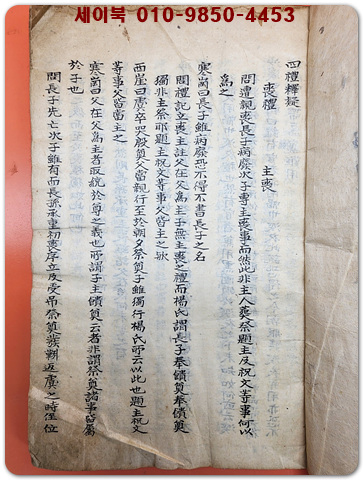 세이북 010-9850-4453
四禮釋疑
喪禮 主喪
問遭親喪長子病廢次子專主喪事而然此非主人喪祭題主及祝文等事何以
爲之
寒岡曰長子雖病廢恐不得不書長子之名
問禮記立喪主註父在父爲主子無主喪之禮而楊氏謂長子奉饋奠奉饋奠
獨非主祭耶題主祝文等事父皆主之耶
西崖曰虞卒哭殷奠父當親行至於朝夕祭奠子雖獨行楊氏所云以此也題主祝文
等事父皆當主之
寒岡曰父在父爲主者取統於尊之義也所謂子主饋奠云者非謂祭奠諸事皆屬
於子也
問長子先亡次子雖有而長孫承重初喪序立及受吊祭奠發靷返虞之時位